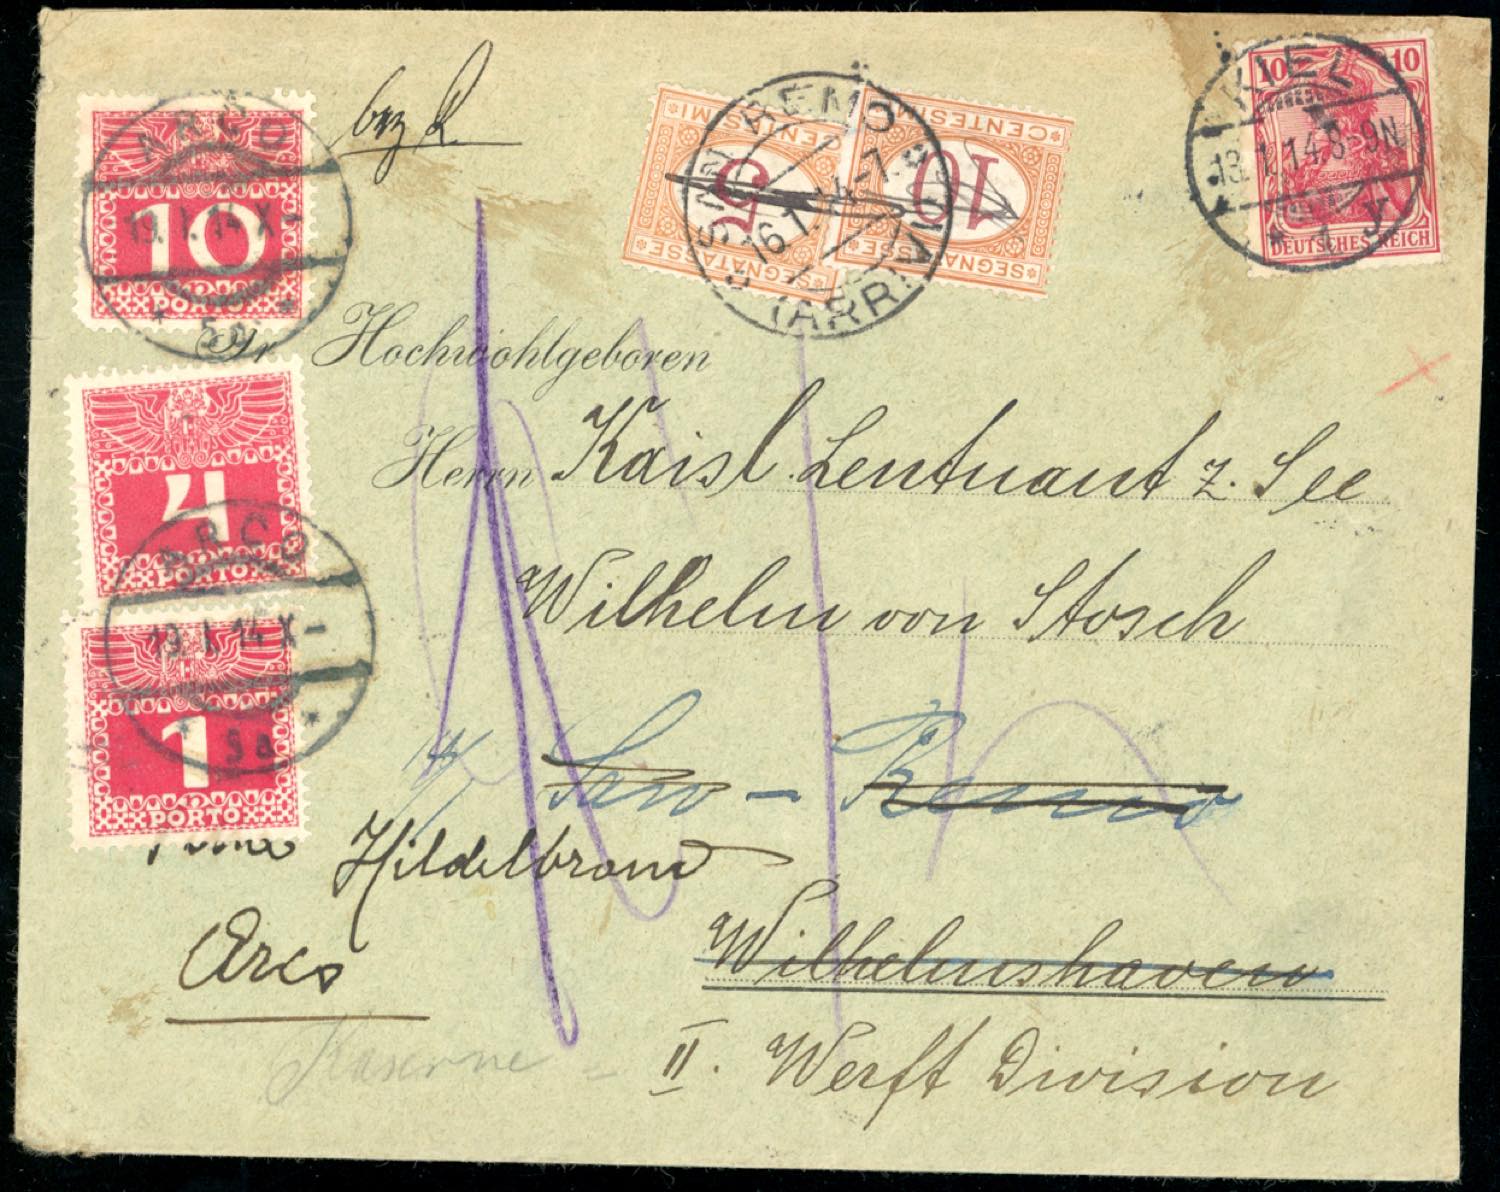 10 10
DEUTSCHES REICH
KIEL
13.1.14.8-9N
* 1 y
CENTESIMI
5
SEGNATASSE
CENTESIMI
10
SEGNATASSE
SAN REMO
16.1.14-7.S
(ARRIVI
10
PORTO
ARCO
19.I.14 X-
* 5a *
4
PORTO
1
PORTO
ARCO
19.I.14 X-
* 5a *
Sr Hochwohlgeboren
Herrn Kaisl. Leutnant z. See
Wilhelm von Stosch
San-Remo
Hildebrand
Wilhelmshaven
Arco
Kaserne
II. Werft Division